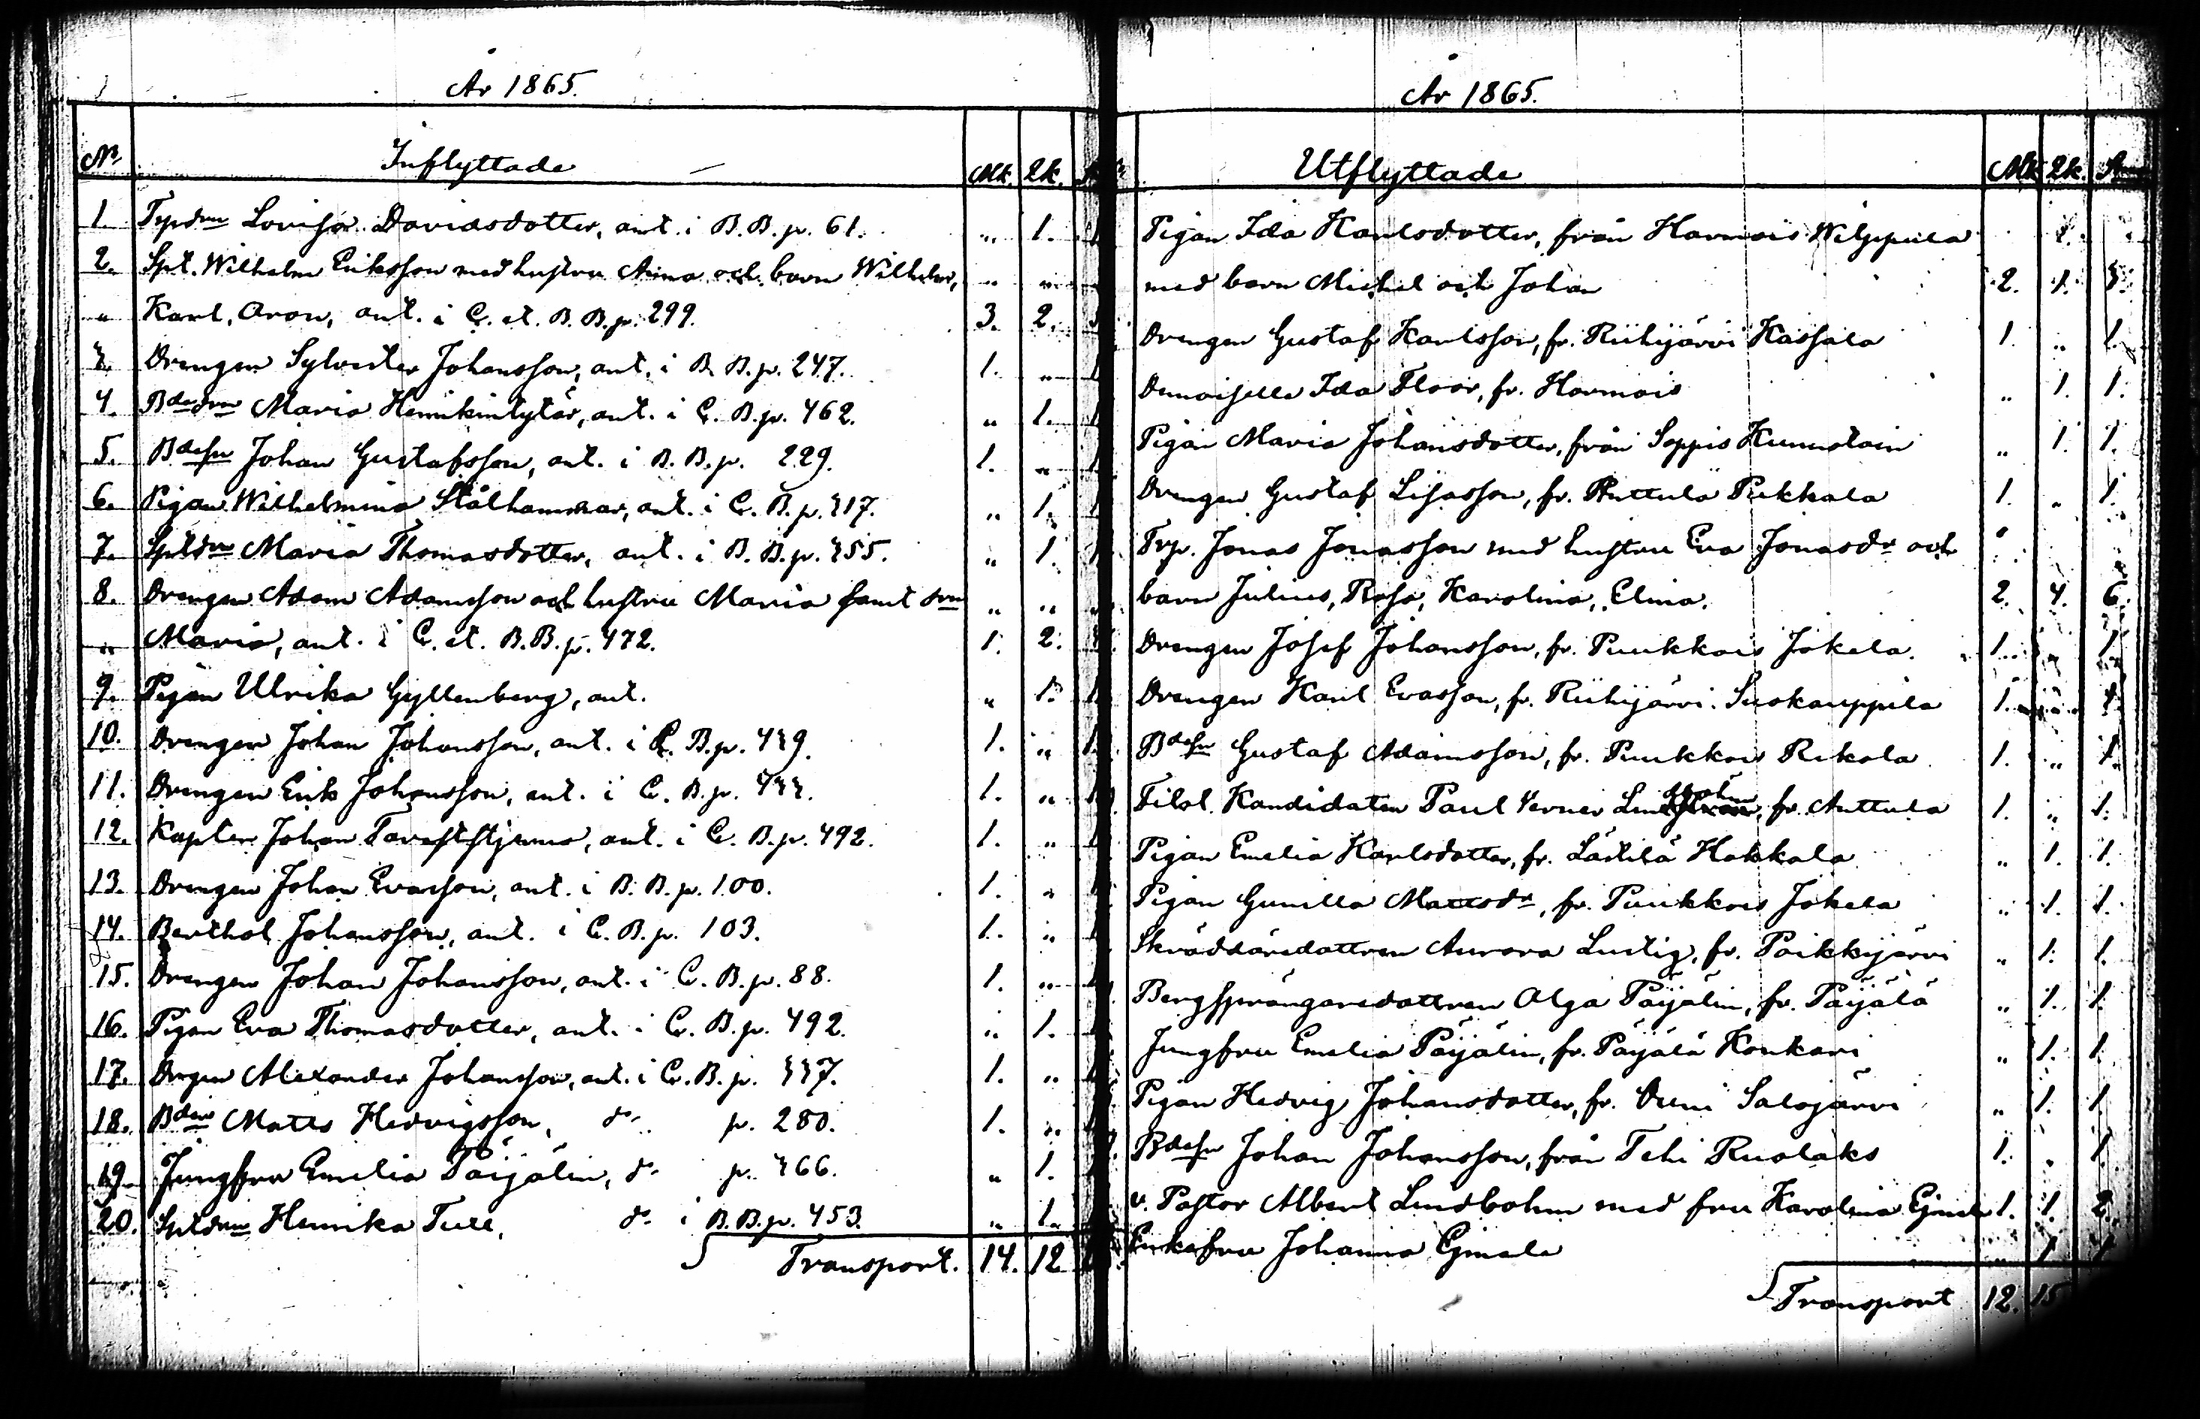 År 1865.
No Inflyttade Mk. Qk.
1. Tpdrn Lovisa Davidsdotter, ant. i B.B. p. 61. „ 1.
2. Spt. Wilhelm Eriksson med hustru Anna och barn Wilhelm, „ „
„ Karl, Aron, ant. i C. et. B.B. p. 299. 3. 2.
3. Drengen Sylvester Johansson, ant. i B.B. p. 247. 1. „
4. Bdedrn Maria Henrikintytär, ant. i C.B. p. 462. „ 1.
5. Bdesn Johan Gustafsson, ant. i B.B. p. 229. 1. „
6. Pigan Wilhelmina Stålhammar, ant. i C.B. p. 317. „ 1.
7. Sptdrn Maria Thomasdotter, ant. i B.B. p. 355. „ 1.
8. Drengen Adam Adamsson och hustru Maria samt drn „ „
„ Maria, ant. i C. et. B.B. p. 472. 1. 2.
9. Pigan Ulrika Gyllenberg, ant. „ 1.
10. Drengen Johan Johansson, ant. i C.B. p. 439. 1. „
11. Drengen Erik Johansson, ant. i C.B. p. 433. 1. „
12. Kapten Johan Tavaststjerna, ant. i C.B. p. 492. 1. „
13. Drengen Johan Evasson, ant. i B.B. p. 100. 1. „
14. Berthol Johansson, ant. i C.B. p. 103. 1. „
15. Drengen Johan Johansson, ant. i C.B. p. 88. 1. „
16. Pigan Eva Thomasdotter, ant. i C.B. p. 492. „ 1.
17. Drgen Alexander Johansson, ant. i C.B. p. 337. 1. „
18. Bden Matts Hedvigsson, do p. 280. 1. „
19. Jungfru Emelia Päijälin, do p. 366. „ 1.
20. Sptdrn Henrika Ture, do i B.B. p. 453. „ 1.
Transport. 14. 12
År 1865.
Utflyttade Mk Qk.
Pigan Ida Karlsdotter, från Harmois Wilppula
med barn Michel och Johan 2. 1. 3.
Drengen Gustaf Karlsson, fr. Riihijärvi Kassala 1. „ 1.
Demoiselle Ida Floor, fr. Harmois „ 1. 1.
Pigan Maria Johansdotter, från Seppis Hunnstain „ 1. 1.
Drengen Gustaf Lisasson, fr. Ruttula Pukkala 1. „ 1.
Trp. Jonas Jonasson med hustru Eva Jonasdr och
barn Julius, Rosa, Karolina, Elina. 2. 4. 6.
Drengen Josef Johansson, fr. Puukkois Jokela. 1. „ 1.
Drengen Karl Evasson, fr. Riihijärvi Suokauppila 1. „ 1.
Bdesn Gustaf Adamsson, fr. Puukkois Rekola 1. „ 1.
Filol. Kandidaten Paul Verner Lindbohm, fr. Auttula 1. „ 1.
Pigan Emelia Karlsdotter, fr. Lästilä Hakkala „ 1. 1.
Pigan Gunilla Mattsdr, fr. Puukkois Jokela „ 1. 1.
Skräddaredottren Aurora Lustig, fr. Poikkijärvi „ 1. 1.
Bergsprängaredottren Olga Päijälin, fr. Päijälä „ 1. 1.
Jungfru Emelia Päijälin, fr. Päijälä Konkari „ 1. 1.
Pigan Hedvig Johansdotter, fr. Salojärvi „ 1. 1.
Bdesn Johan Johansson, från Tehi Ruolaks 1. „ 1.
v. Pastor Albert Lindbohm med fru Karolina Gjmele 1. 1. 2.
Enkefru Johanna Gjmele „ 1. 1.
Transport 12. 15